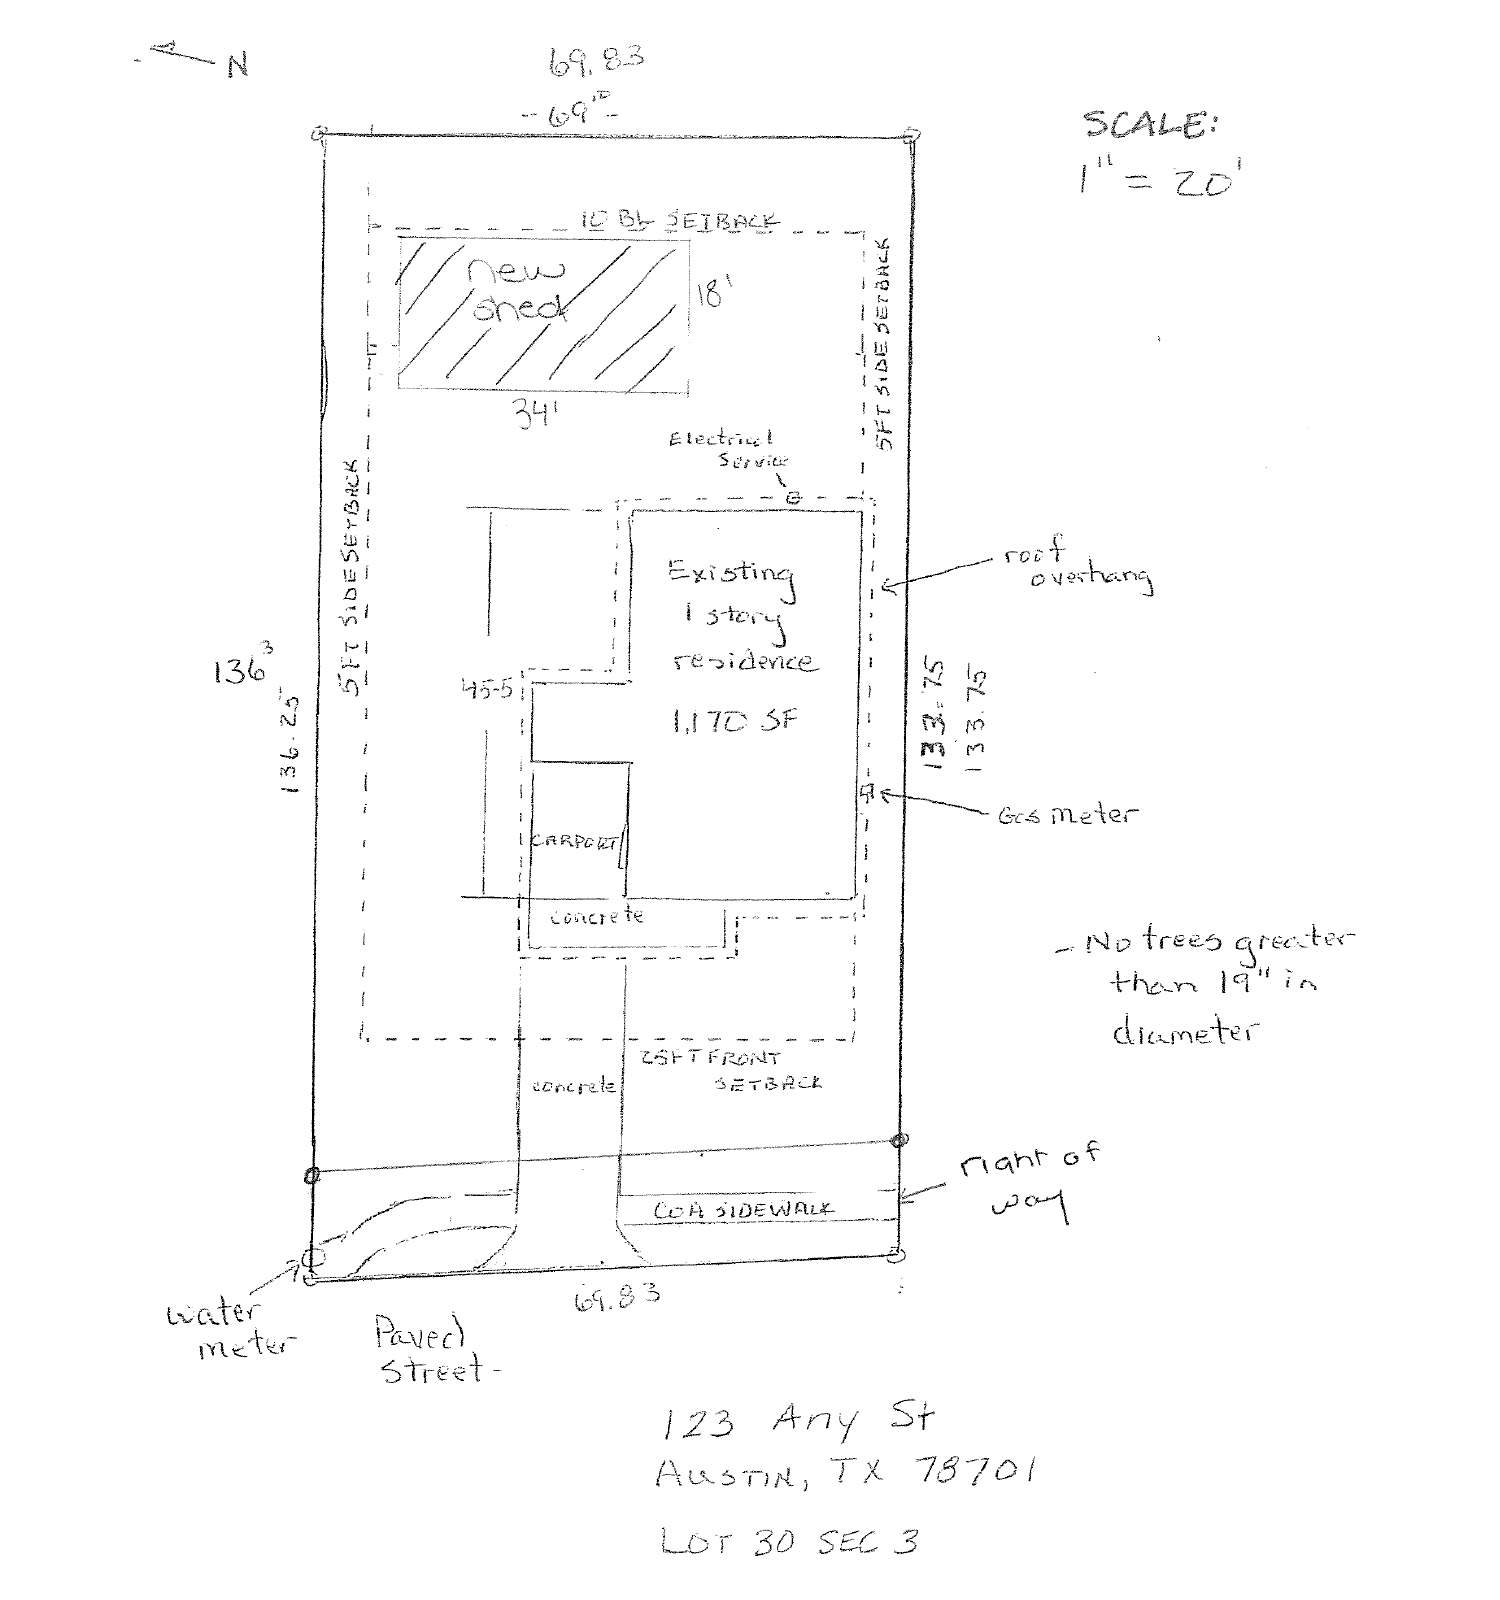 N
69.83
- 69'10 -
SCALE:
1" = 20'
10 BL SETBACK
new
shed
18'
34'
5FT SIDE SETBACK
Electrical
Service
5FT SIDE SETBACK
roof
overhang
Existing
1 story
residence
1,170 SF
45-5
136 3
136.25
133.75
133.75
Gas meter
CARPORT
concrete
- No trees greater
than 19" in
diameter
25FT FRONT
SETBACK
concrete
right of
way
COA SIDEWALK
69.83
water
meter
Paved
street -
123 Any St
AUSTIN, TX 78701
LOT 30 SEC 3